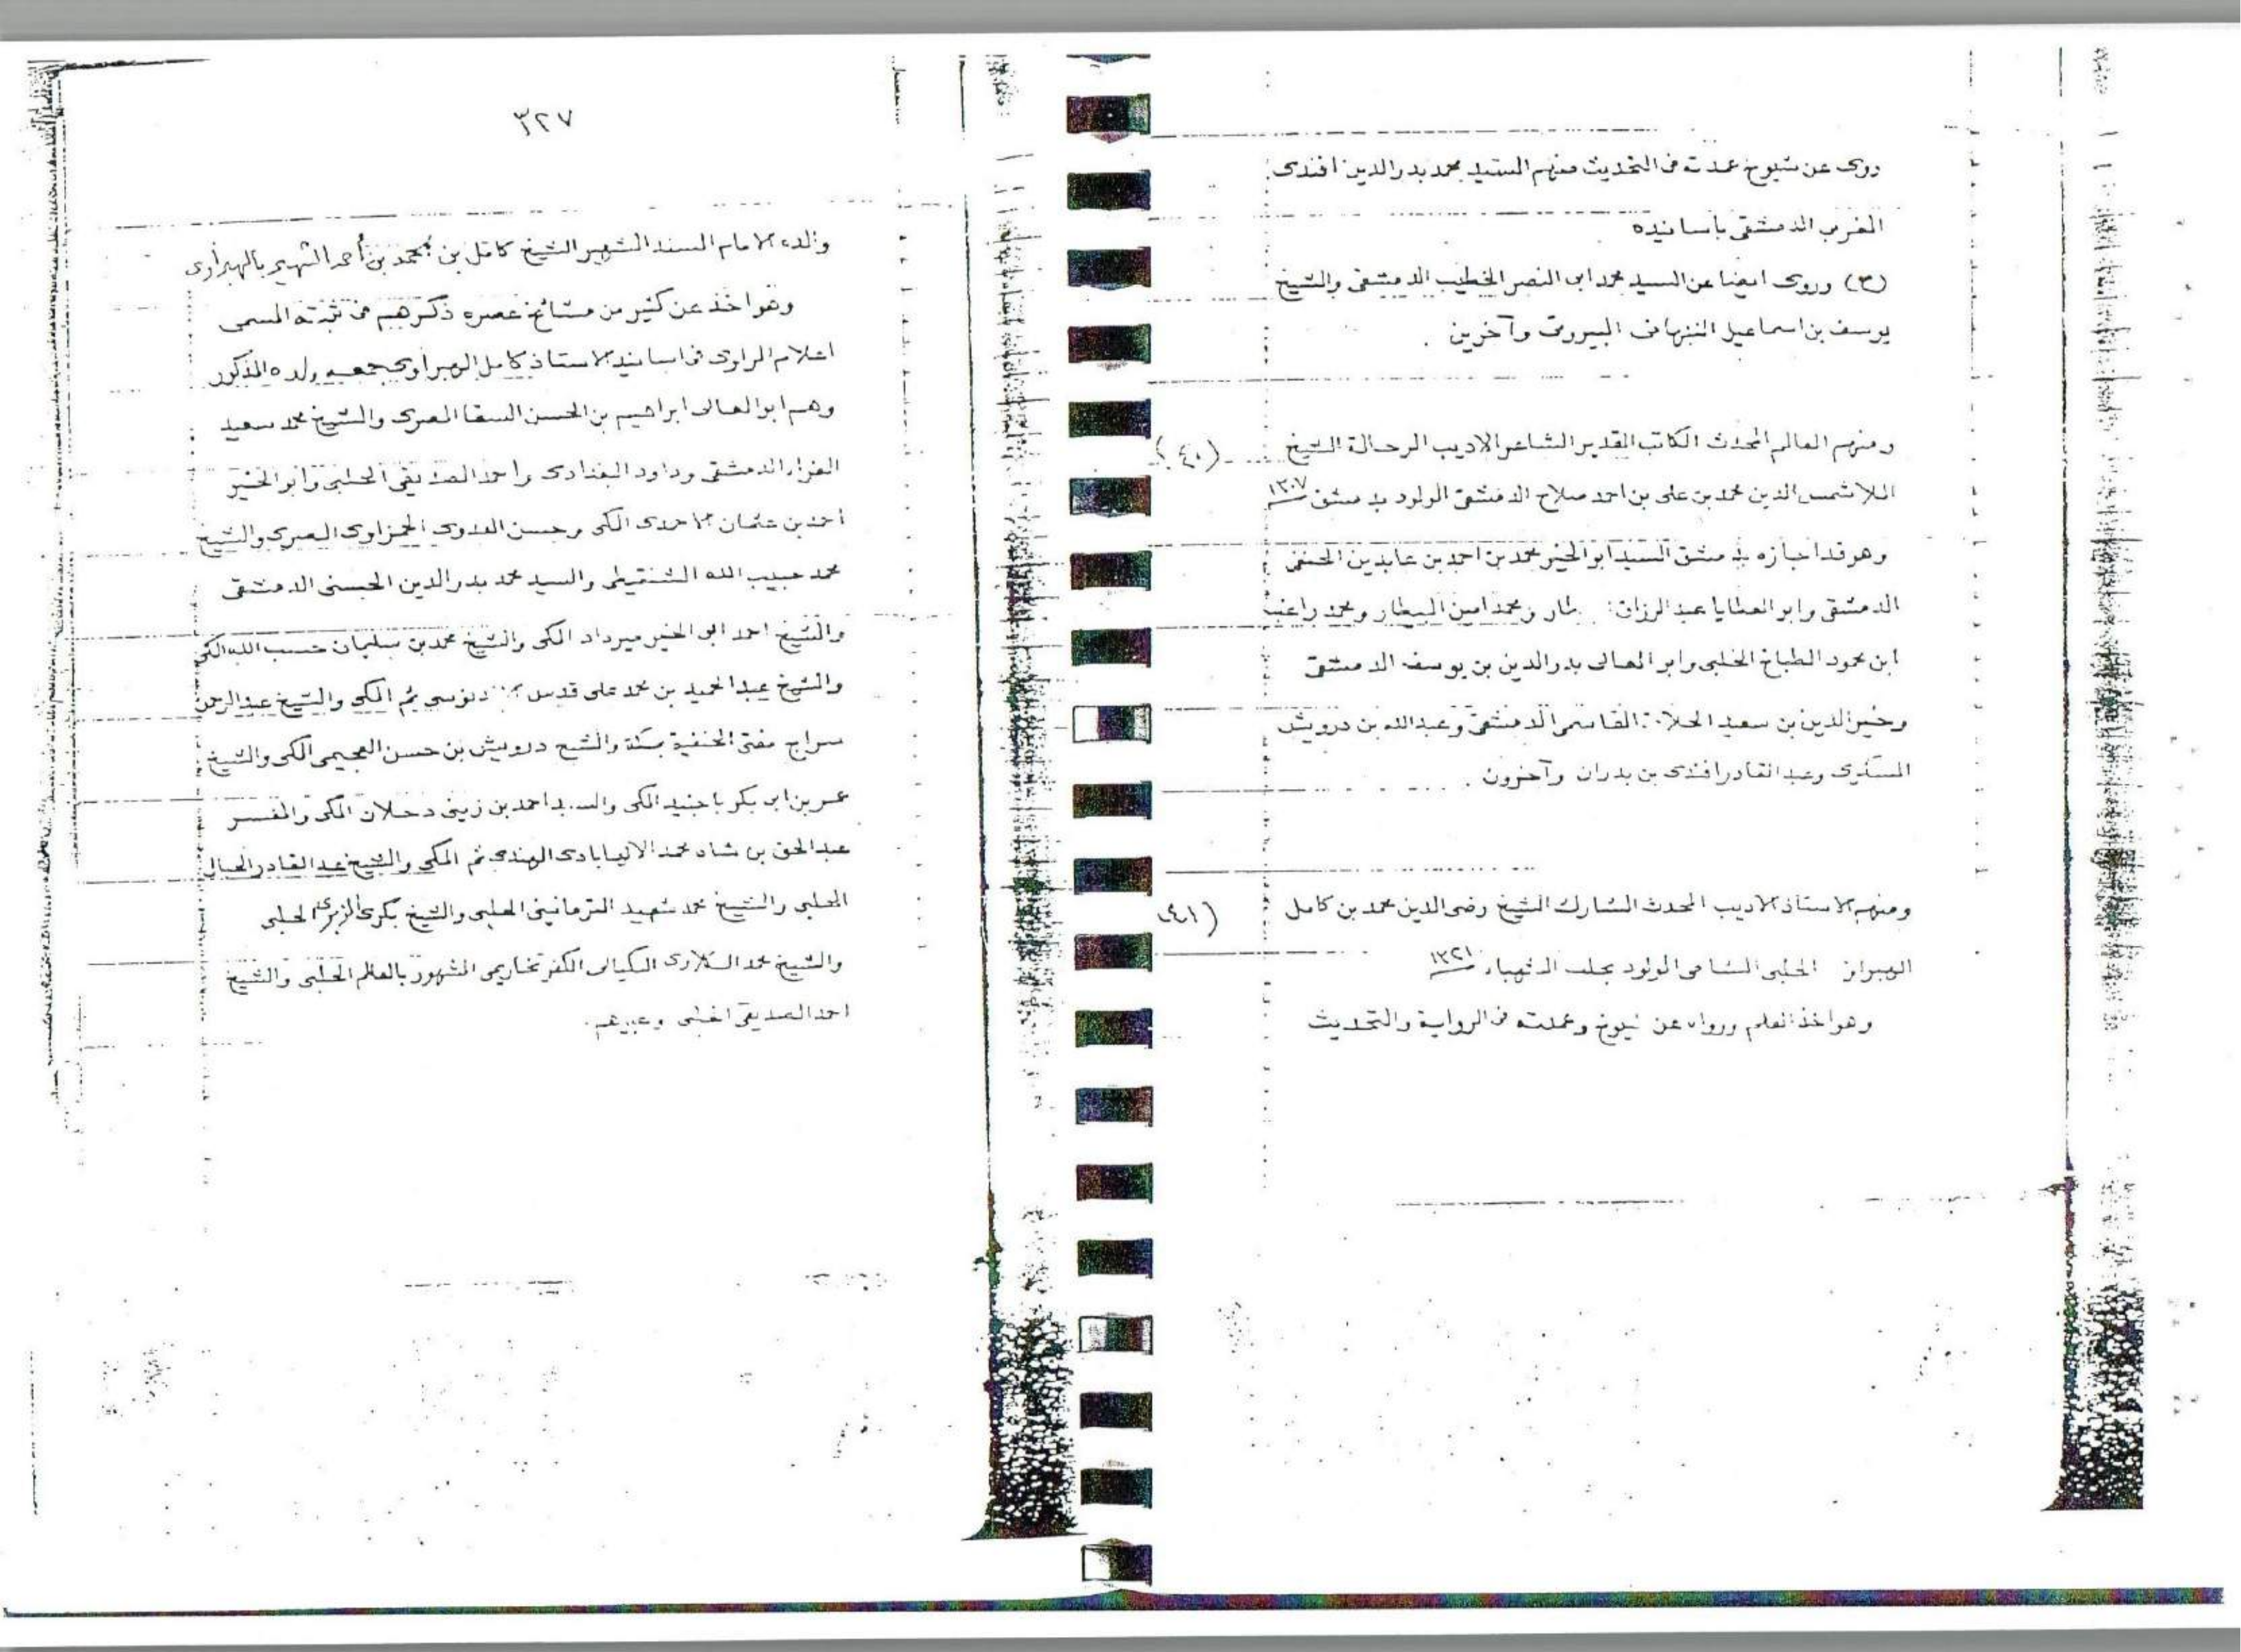 روى عن شيوخ عمدته فى التحديث منهم السيد محمد بدر الدين افندى
المغربى الدمشقى بأسانيده
(٣) وروى ايضا عن السيد محمد ابى النصر الخطيب الدمشقى والشيخ
يوسف بن اسماعيل النبهانى البيروتى وآخرين .
(٤٠) ومنهم العالم المحدث الكاتب القدير الشاعر الاديب الرحالة الشيخ
الملا شمس الدين محمد بن على بن احمد صلاح الدمشقى المولود بدمشق ١٣٠٧
وهو قد اجازه بدمشق السيد ابو الخير محمد بن احمد بن عابدين الحنفى
الدمشقى وابو العطايا عبد الرزاق طار ومحمد امين البيطار ومحمد راغب
ابن محمود الطباخ الحلبى وابو المعالى بدر الدين بن يوسف الدمشقى
وخير الدين بن سعيد القاسمى الدمشقى وعبدالله بن درويش
السكرى وعبد القادر افندى بن بدران وآخرون .
(٤١) ومنهم الاستاذ الاديب المحدث المشارك الشيخ رضى الدين محمد بن كامل
الحلبى الشامى المولود بحلب الشهباء ١٣٢١
وهو اخذ العلم ورواه عن شيوخ وعمدته فى الرواية والتحديث
٣٢٧
والده الامام المسند الشهير الشيخ كامل بن محمد بن أحمد الشهير بالهبراوى
وهو اخذ عن كثير من مشائخ عصره ذكرهم فى ثبته المسمى
اعلام الراوى فى اسانيد الاستاذ كامل الهبراوى جمعه ولده المذكور
وهم ابو المعالى ابراهيم بن الحسن السقا المصرى والشيخ محمد سعيد
الدمشقى وداود البغدادى واحمد الصديقى الحلبى وابو الخير
أحمد بن عثمان الاحمدى المكى وحسن العدوى الحمزاوى المصرى والشيخ
محمد حبيب الله الشنقيطى والسيد محمد بدر الدين الحسنى الدمشقى
والشيخ احمد ابو الخير ميرداد المكى والشيخ محمد بن سليمان حسب الله المكى
والشيخ عبد الحميد بن محمد على قدس ثم المكى والشيخ عبد الرحمن
سراج مفتى الحنفية بمكة والشيخ درويش بن حسن العجيمى المكى والشيخ
عمر بن ابى بكر باجنيد المكى والسيد احمد بن زينى دحلان المكى والمفسر
عبد الحق بن شاه محمد الاليابادى الهندى ثم المكى والشيخ عبد القادر الحبال
الحلبى والشيخ محمد شهيد الترمانينى الحلبى والشيخ بكرى الزبرى الحلبى
والشيخ محمد الكيالى الكفرتخاريمى المشهور بالعالم الحلبى والشيخ
احمد الصديقى الحلبى وغيرهم .